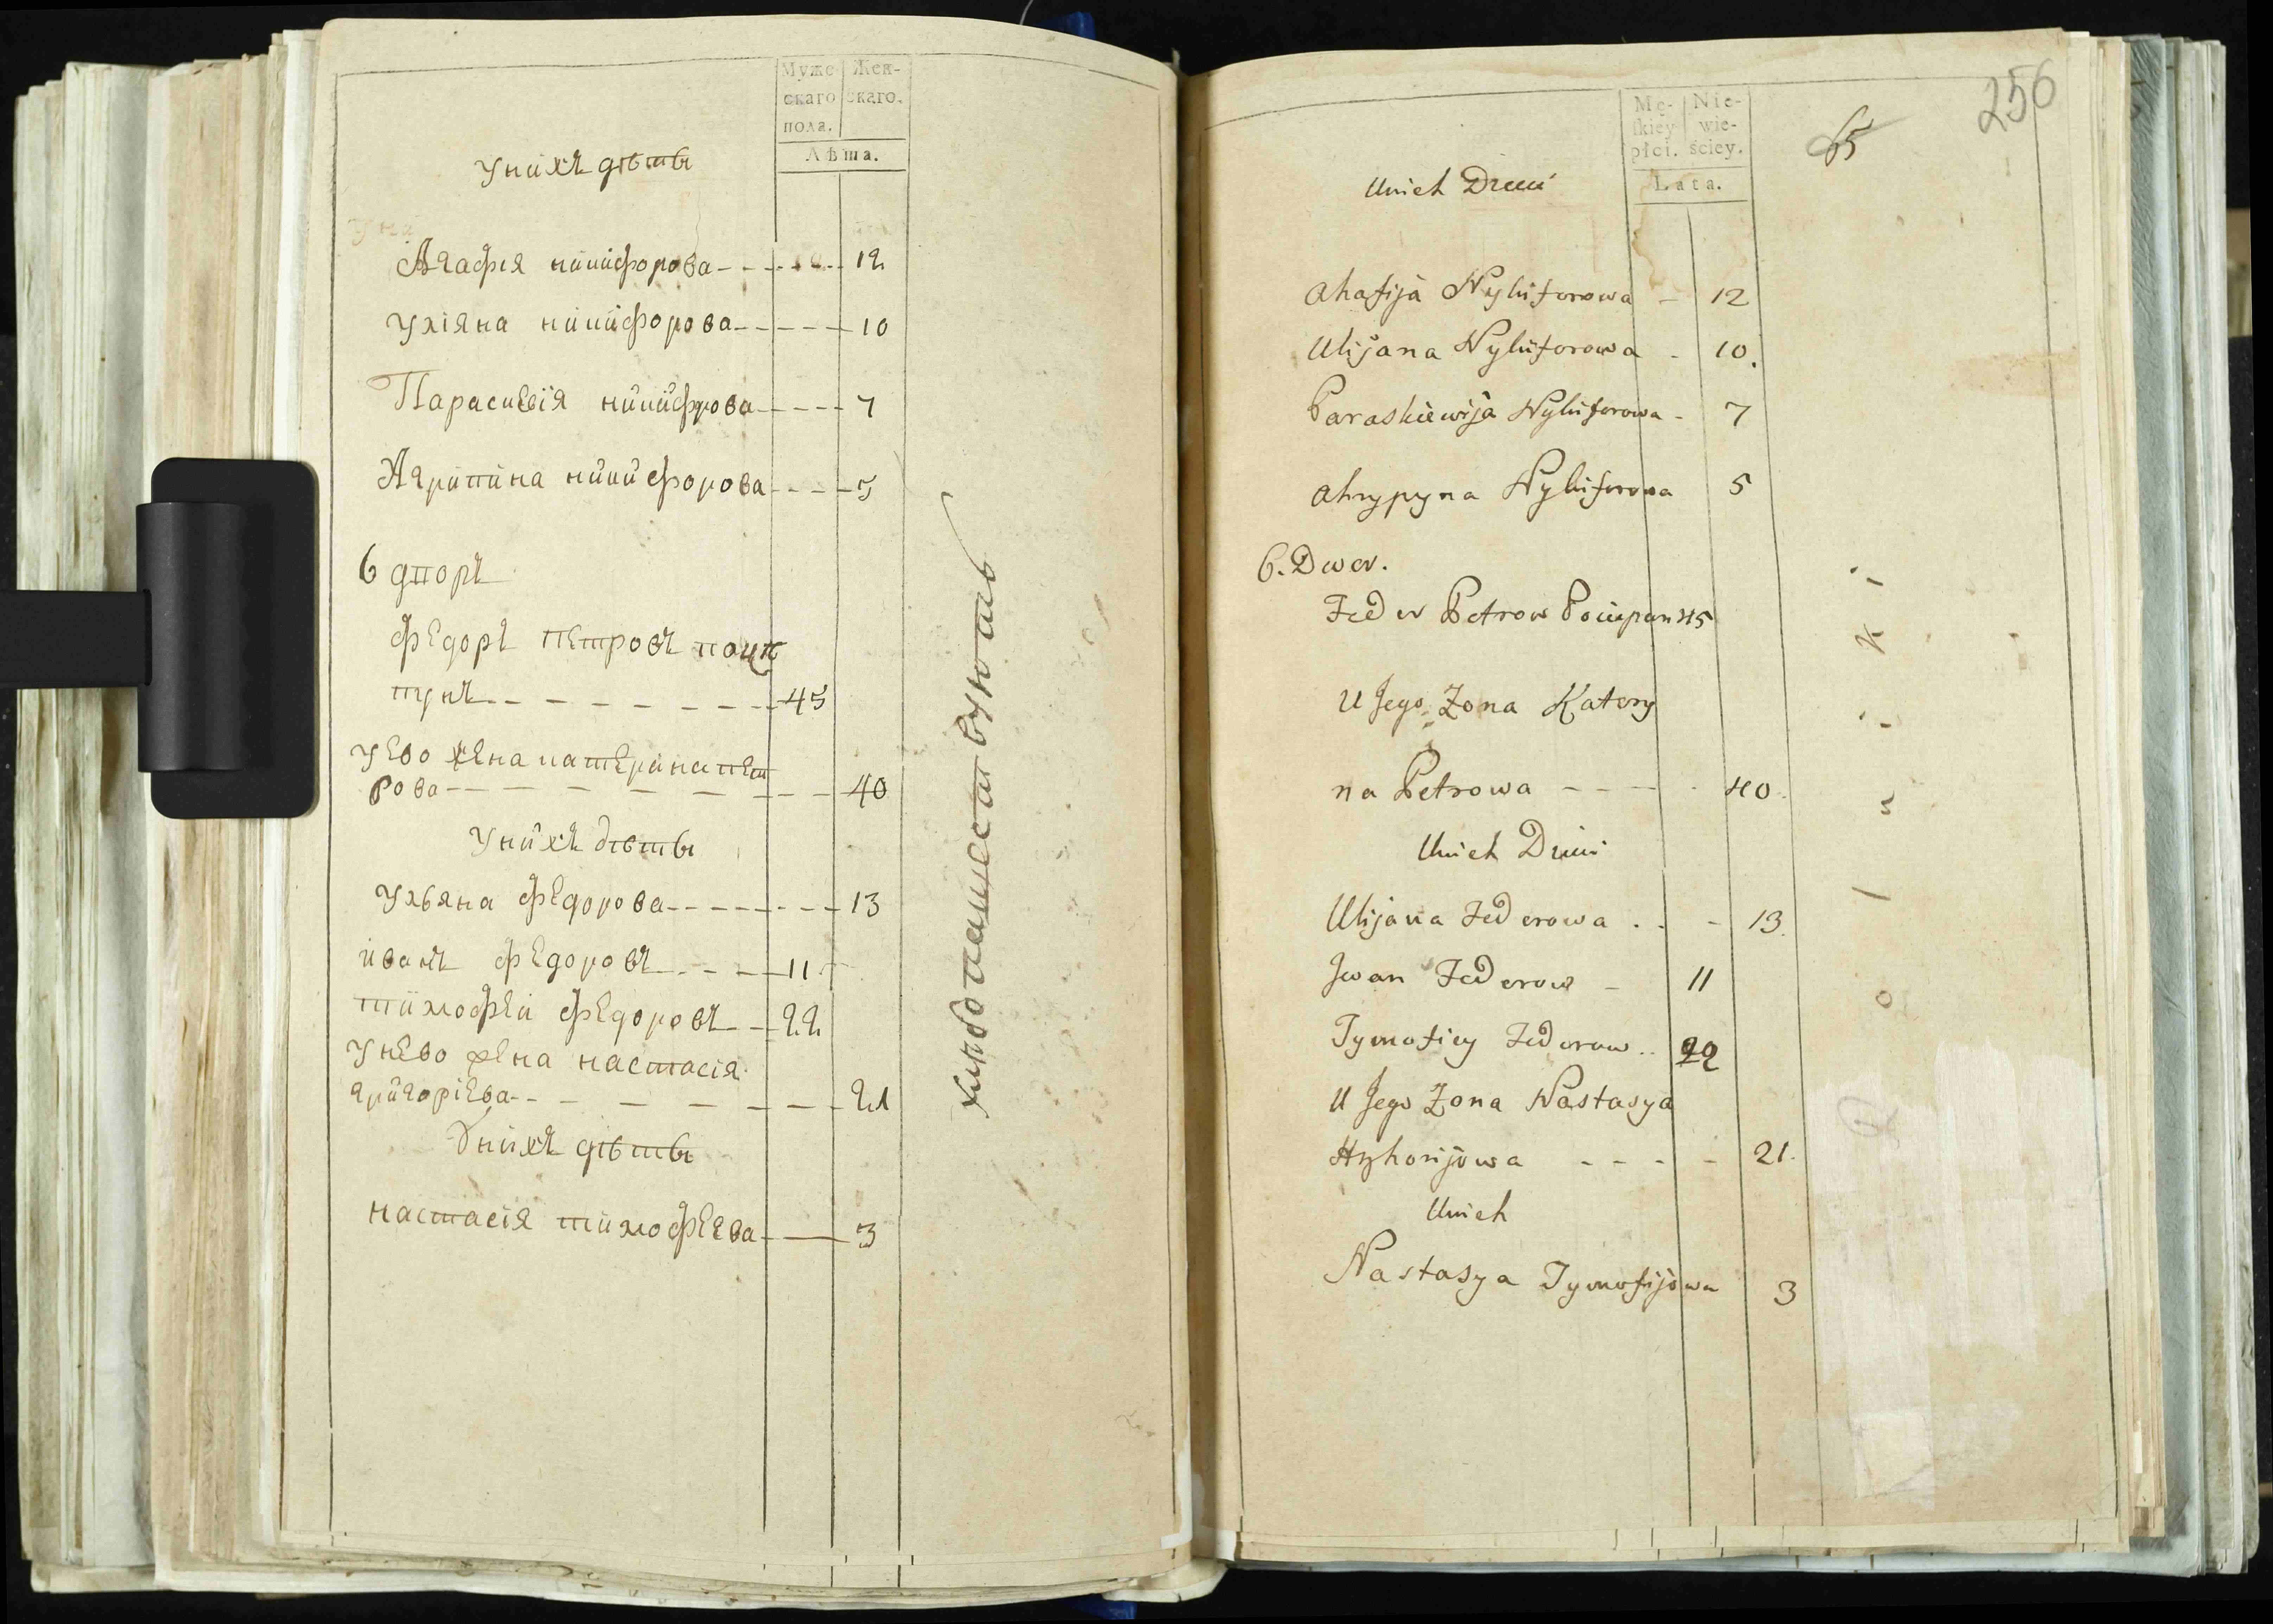 Муже- Жен-
скаго скаго.
пола.
Лѣта.
Унихъ дѣты
Агафия никифорова 12
Улiяна никифорова 10
Параскевiя никифрова 7
Агрипина никифорова 5
6 дпоръ
федоръ петровъ поцп
пунъ 45
Уево жена катерина пет
рова 40
Унихъ дѣты
Ульяна федорова 13
иванъ федоровъ 11
тимофеи федоровъ 22
Унево жена настасiя
григорiева 21
Унихъ дѣты
настасiя тимофеева 3
хлѣбопашест
Mę- Nie-
skiey wie-
płci. ściey.
Lata.
65
256
Unich Dzieci
Ahafija Nykiforowa - 12
Ulijana Nykiforowa - 10.
Paraskiewija Nykiforowa - 7
Ahrypyna Nykiforowa 5
6. Dwor.
Fedor Petrow Pocupun 45
U Jego Zona Katery
na Petrowa - - - 40.
Unich Dzieci
Ulijana Fedorowa . . - 13.
Jwan Fedorow - 11
Tymofiey Fedorow .. 22
U Jego Zona Nastasya
Hryhorijowa - - - - 21.
Unich
Nastasya Tymofijowa 3